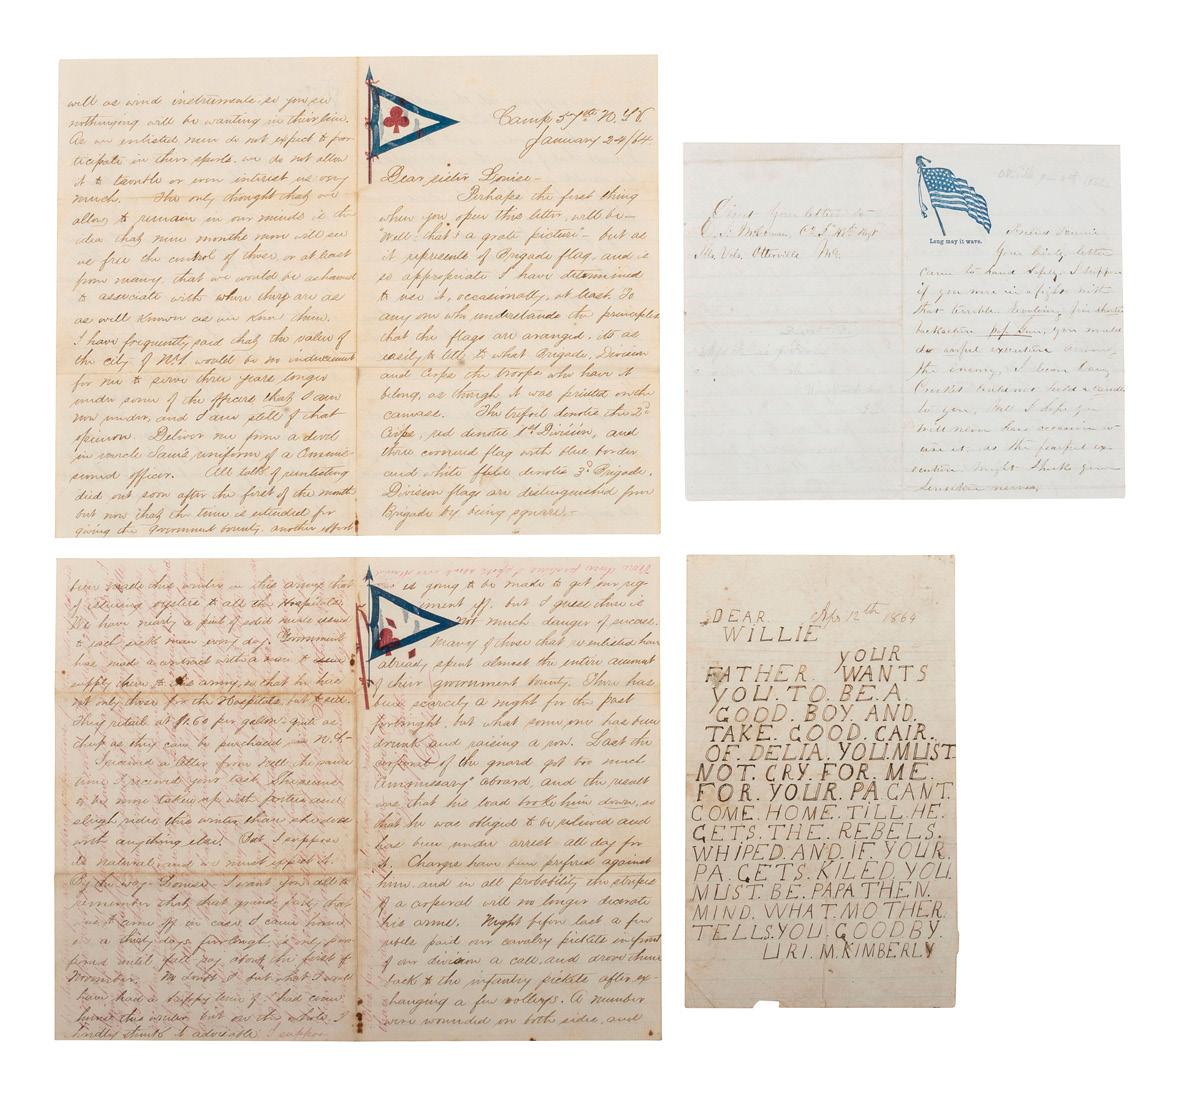 will as wind instruments, so you see
nothinging will be wanting in their line.
As we enlisted men do not expect to par-
ticipate in their sports, we do not allow
it to trouble or even interest us very
much. The only thought that we
allow to remain in our minds is the
idea that nine months more will see
us free the control of those, or at least
from many, that we would be ashamed
to associate with where they are as
as well known as we know them.
I have frequently said that the value of
the city of N.Y. would be no inducement
for me to serve three years longer
under some of the officers that I am
now under, and I am still of that
opinion. Deliver me from a devil
in uncle Sam's uniform of a Commis-
sioned officer. All talk of reenlisting
died out soon after the first of the month
but now that the time is extended for
giving the government bounty, another effort
Camp 57th N.Y.V.
January 24/64.
Dear sister Louise-
Perhaps the first thing
when you open this letter, will be-
"Well! that's a grate picture" - but as
it represents of Brigade flag, and is
so appropriate I have determined
to use it, occasionally, at least. To
any one who understands the principles
that the flags are aranged, its as
easily to tell to what Brigade, Division
and Corps the troops who have it
belong, as though it was printed on the
canvass. The trefoil denotes the 2d
Corps, red denotes 1st Division, and
three cornered flag with blue border
and white field denotes 3d Brigade.
Division flags are distinguished from
Brigade by being square.-
Direct your letters to
Co. I 47th Regt
Ills. Vols. Otterville Mo.
Long may it wave.
Friend
Your kind letter
came to hand safely. I suppose
if you were in a fight with
that terrible
pop gun, you would
do awful execution among
the enemy,
to you. Well I hope you
will never have occasion to
use it as the fearful ex-
ecution might shock your
sensitive nerves.
been made this winter in this army that
of issuing oysters to all the Hospitals.
We have nearly a pint of solid meat issued
to each sick man every day. Government
has made a contract with a man to
supply them to this army, so that he has
not only those for the Hospitals, but to sell.
They retail at $1.60 per gallon - quite as
cheap as they can be purchased in N.Y.-
I received a letter from Nell the same
time I received your last. She seems
to be more taken up with parties and
sleigh rides this winter than she does
with anything else. But I suppose
its natural and we must expect it.
By the way Louise - I want you all to
remember that that grand party that
was to came off in case I came home
on a thirty days furlough is only post-
poned until fall say about the first of
November. No doubt but what I would
have had a happy time if I had come
home this winter, but on the whole I
hardly think it advisable. I suppose
is going to be made to get our reg-
iment off, but I guess there is
not much danger of success.
Many of those that reenlisted have
already spent almost the entire amount
of their government bounty. There has
been scarcely a night for the past
fortnight, but what some one has been
drunk and raising a row. Last the
corporal of the guard got too much
"Commissary" aboard, and the result
was that his load broke him down, so
that he was obliged to be relieved and
has been under arrest all day for
it. Charges have been prefered against
him, and in all probability the stripes
of a corporal will no longer decorate
his arms. Night before last a few
rebels paid our cavalry pickets in front
of our division a call, and drove them
back to the infantry pickets after ex-
changing a few volleys. A number
were wounded on both sides, and
Apr 12th 1864
DEAR.
WILLIE
YOUR
FATHER. WANTS
YOU. TO. BE. A.
GOOD. BOY. AND.
TAKE. GOOD. CAIR.
OF. DELIA. YOU. MUST
NOT. CRY. FOR. ME.
FOR. YOUR. PA CANT.
COME. HOME. TILL. HE.
GETS. THE. REBELS.
WHIPED. AND. IF. YOUR.
PA. GETS. KILED. YOU.
MUST. BE. PAPA THEN.
MIND. WHAT. MOTHER.
TELLS. YOU. GOODBY.
URI. M. KIMBERLY